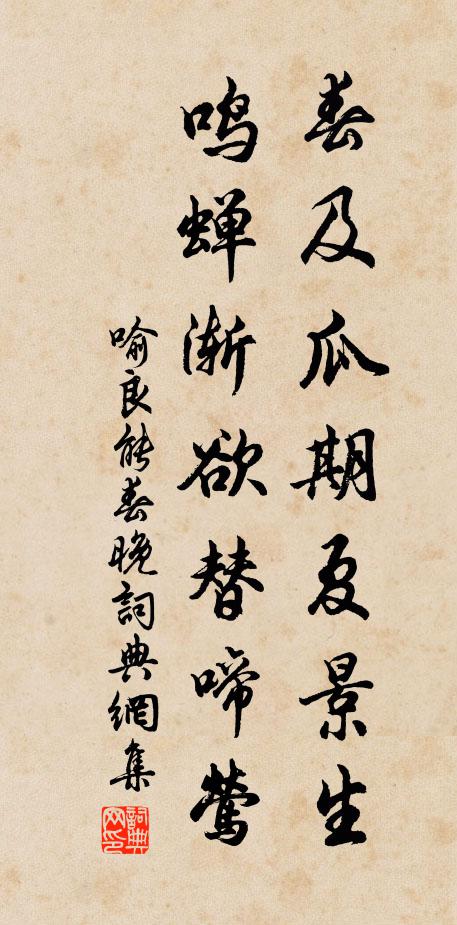 春及瓜期夏景生
鸣蝉渐欲替啼莺
喻良能春晚词典網集
詞典网印